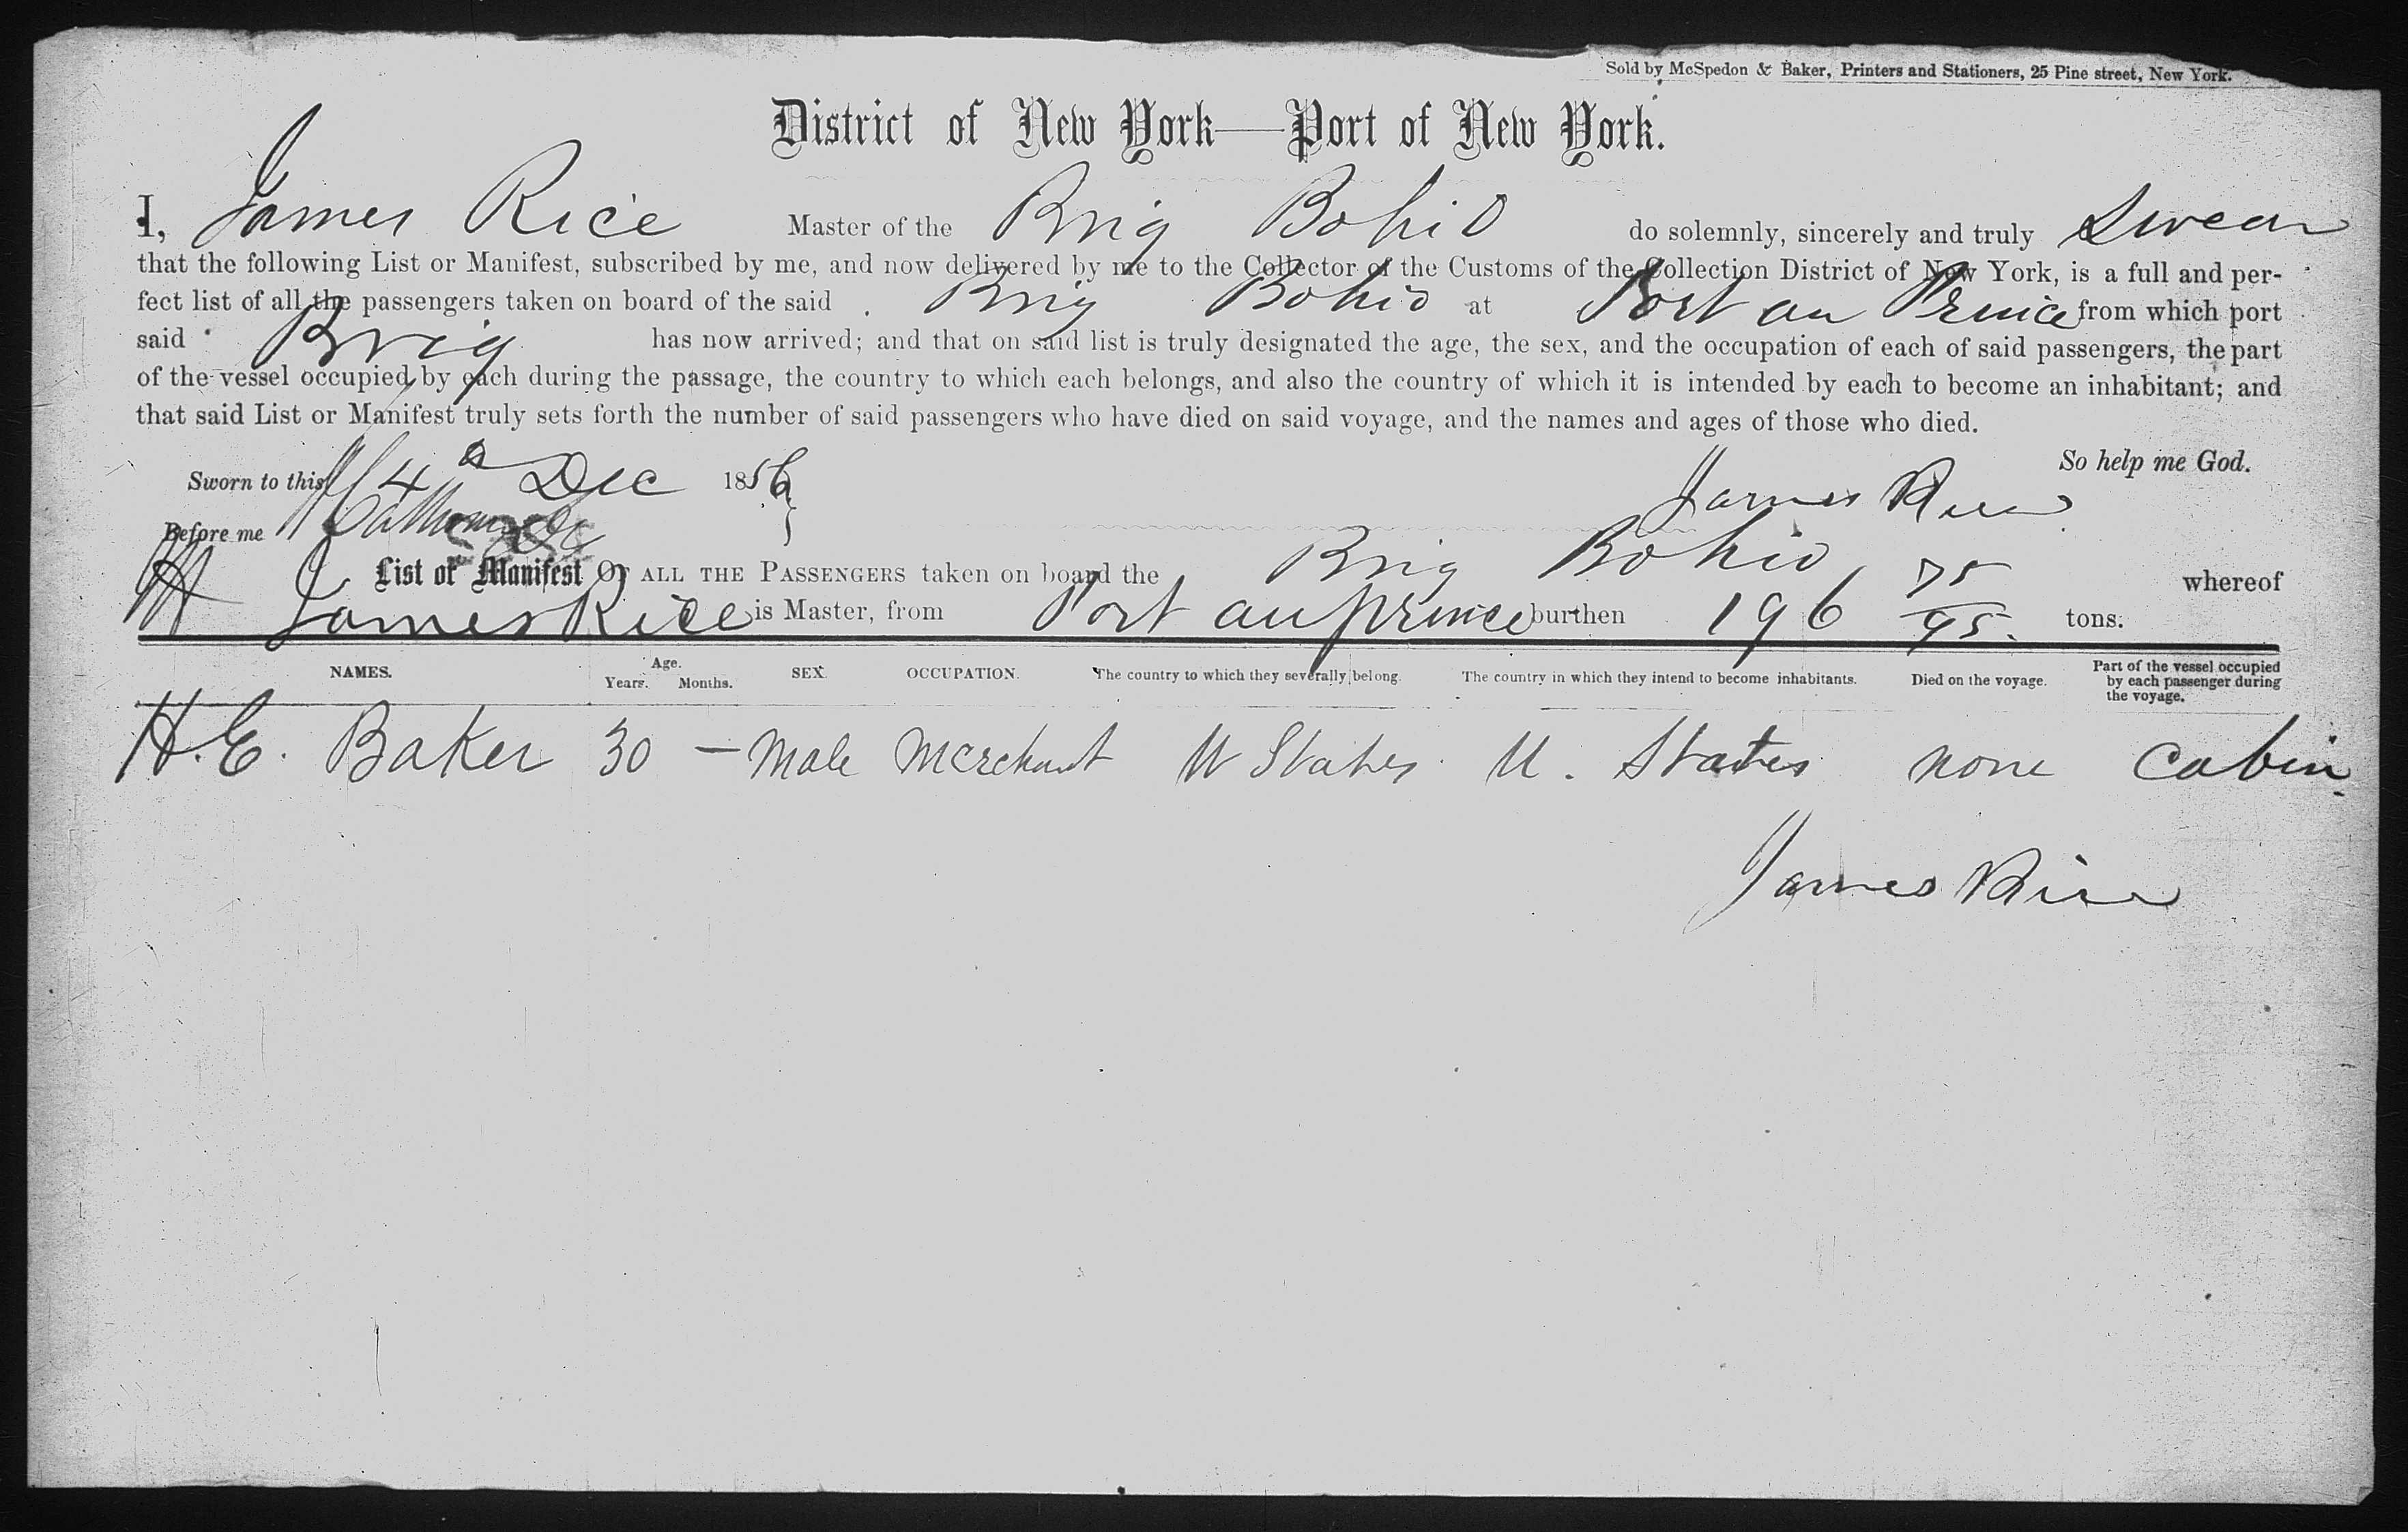 Sold by McSpedon & Baker, Printers and Stationers, 25 Pine street, New York.
District of New York—Port of New York.
I, James Rice Master of the Brig Bohio do solemnly, sincerely and truly Swear
that the following List or Manifest, subscribed by me, and now delivered by me to the Collector of the Customs of the Collection District of New York, is a full and per-
fect list of all the passengers taken on board of the said Brig Bohio at Port au Prince from which port
said Brig has now arrived; and that on said list is truly designated the age, the sex, and the occupation of each of said passengers, the part
of the vessel occupied by each during the passage, the country to which each belongs, and also the country of which it is intended by each to become an inhabitant; and
that said List or Manifest truly sets forth the number of said passengers who have died on said voyage, and the names and ages of those who died.
So help me God.
Sworn to this 4 Dec 1856
James Rice
Before me
List or Manifest OF ALL THE PASSENGERS taken on board the Brig Bohio whereof
James Rice is Master, from Port au prince burthen 196 75/95 tons.
NAMES. Age. Years. Months. SEX. OCCUPATION. The country to which they severally belong. The country in which they intend to become inhabitants. Died on the voyage. Part of the vessel occupied by each passenger during the voyage.
H. E. Baker 30 — Male Merchant U States U. States none cabin
James Rice